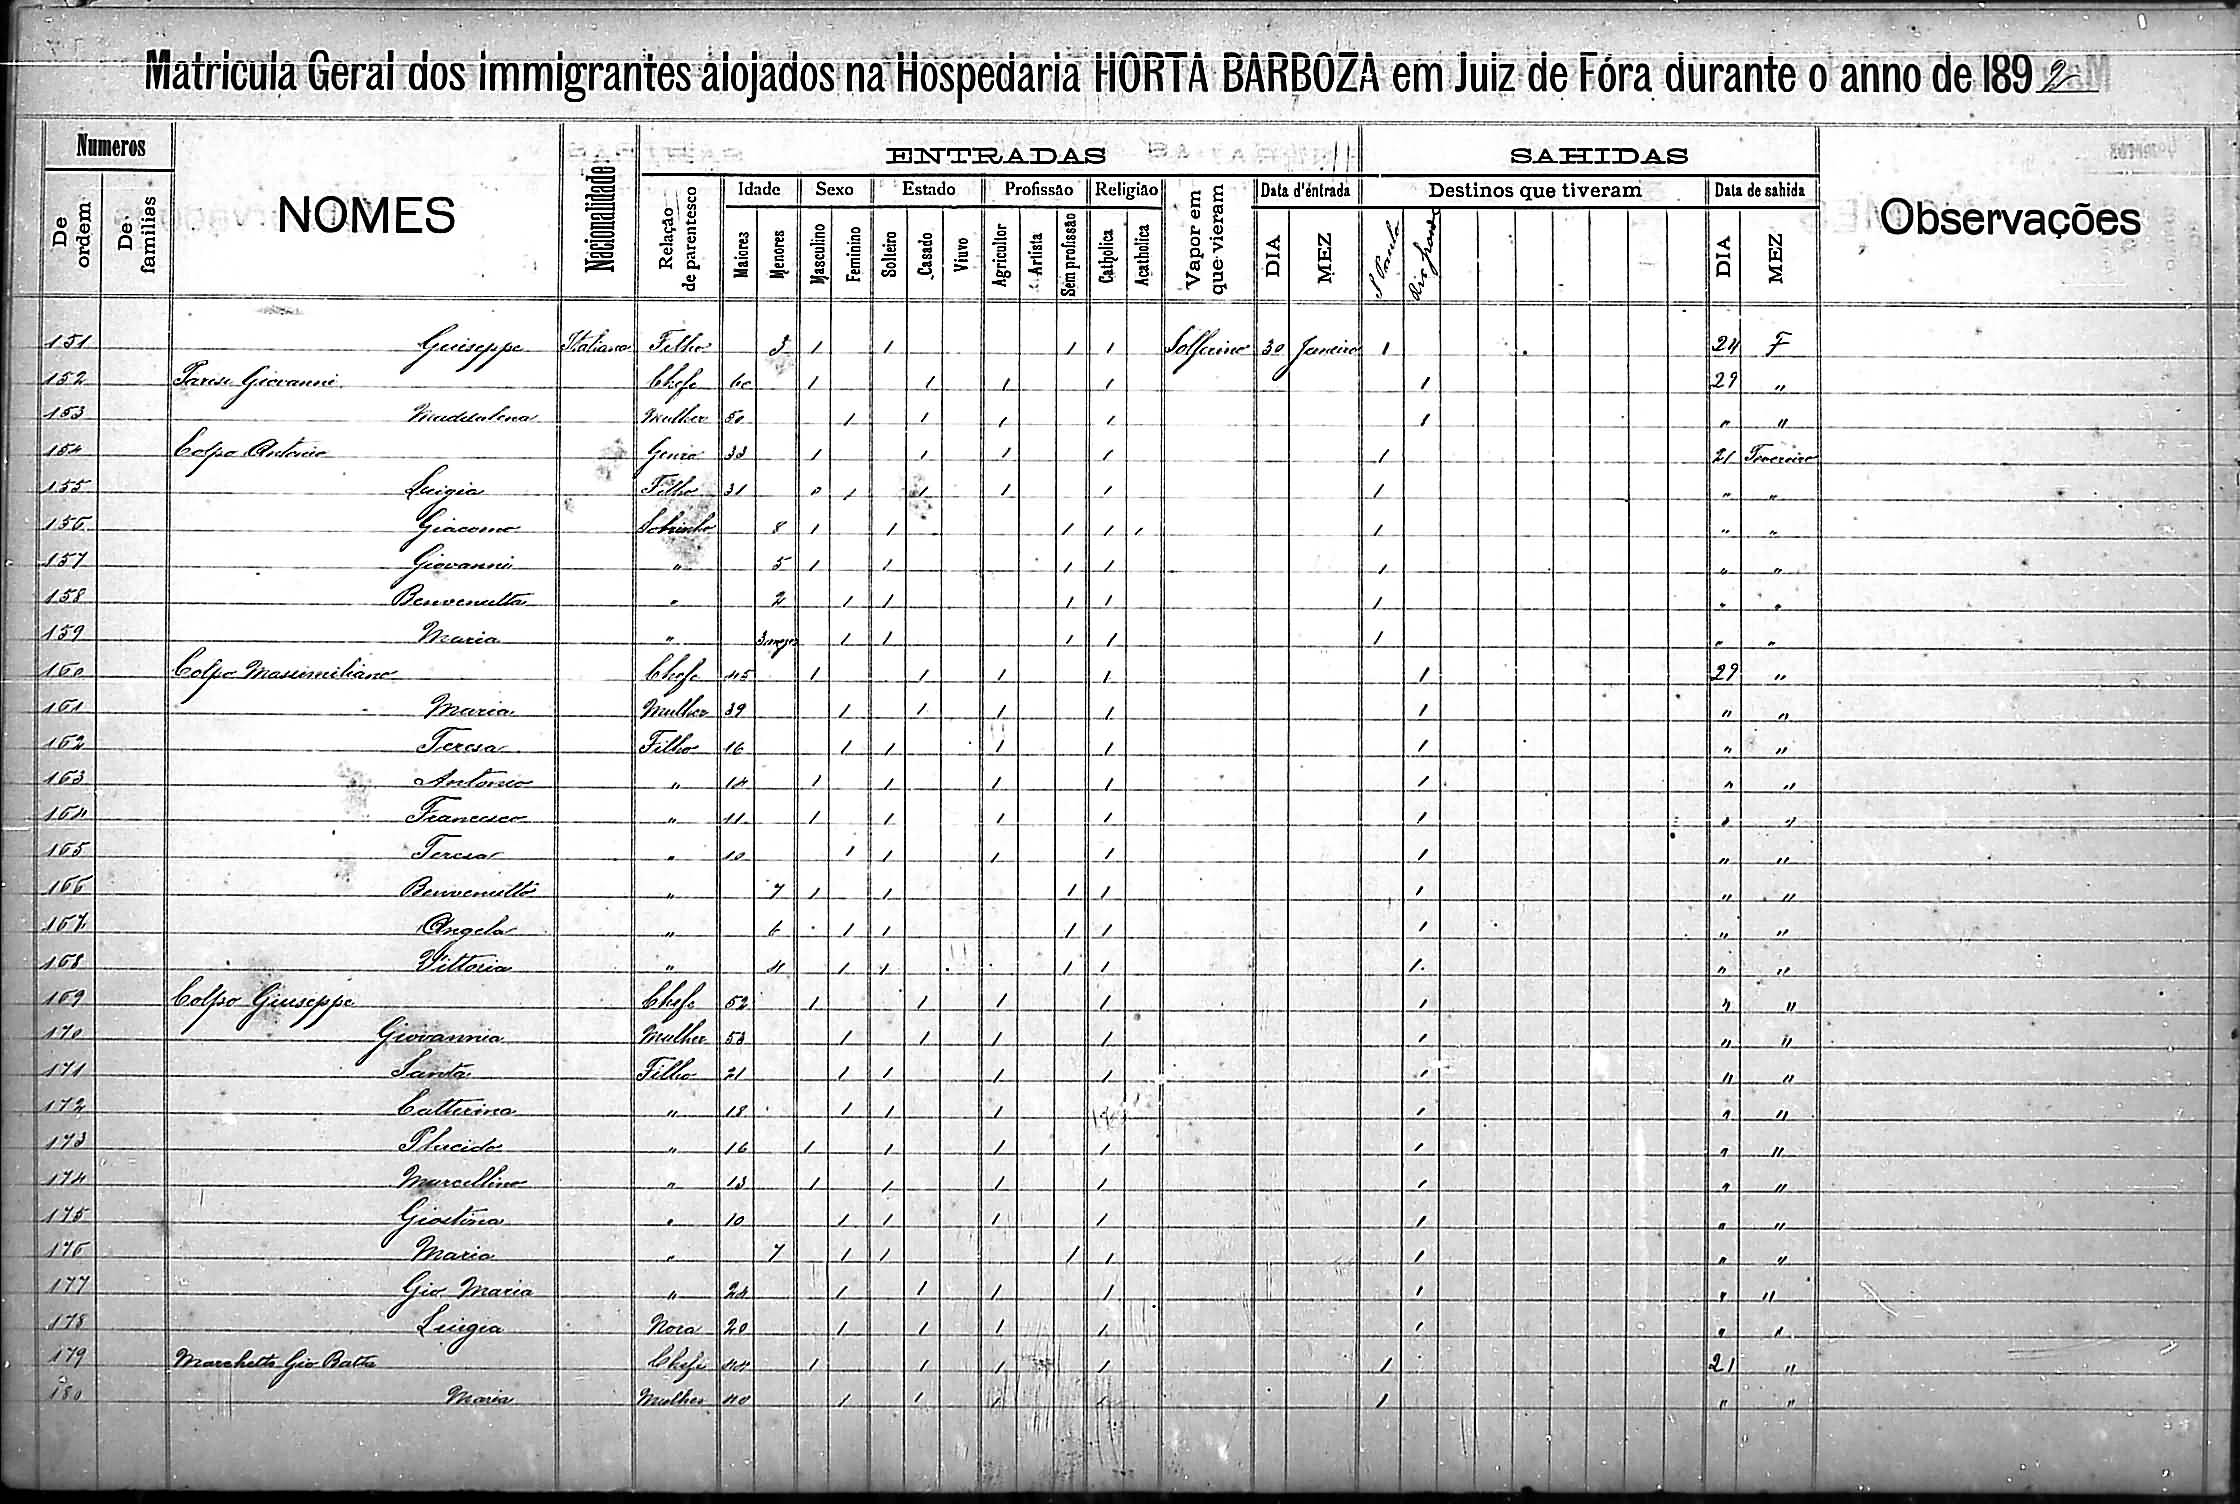 Matricula Geral dos immigrantes alojados na Hospedaria HORTA BARBOZA em Juiz de Fóra durante o anno de 1892
Numeros NOMES Nacionalidade ENTRADAS SAHIDAS Observações
De ordem De familias Relação de parentesco Idade Sexo Estado Profissão Religião Vapor em que vieram Data d'éntrada Destinos que tiveram Data de sahida
Maiores Menores Masculino Feminino Solteiro Casado Viuvo Agricultor Artista Sem profissão Catholica Acatholica DIA MEZ S Paulo Rio grande DIA MEZ
151 Guiseppe Italiana Filho 3 1 1 1 1 Solferino 30 Janeiro 1 24 F
152 Parise Giovanni Chefe 60 1 1 1 1 1 29 "
153 Maddalena Mulher 50 1 1 1 1 1 " "
154 Colpo Antonio Genro 33 1 1 1 1 1 21 Fevereiro
155 Luigia Filho 31 0 1 1 1 1 1 " "
156 Giacomo Sobrinho 8 1 1 1 1 1 1 " "
157 Giovanni " 5 1 1 1 1 1 " "
158 Benvenutta " 2 1 1 1 1 1 " "
159 Maria " 3 mezes 1 1 1 1 1 " "
160 Colpo Massimiliano Chefe 45 1 1 1 1 1 29 "
161 Maria Mulher 39 1 1 1 1 1 " "
162 Teresa Filho 16 1 1 1 1 1 " "
163 Antonio " 14 1 1 1 1 1 " "
164 Francisco " 11 1 1 1 1 1 " "
165 Teresa " 10 1 1 1 1 1 " "
166 Benvenutto " 7 1 1 1 1 1 " "
167 Angela " 6 1 1 1 1 1 " "
168 Vittoria " 4 1 1 1 1 1 " "
169 Colpo Giuseppe Chefe 52 1 1 1 1 1 " "
170 Giovannia Mulher 53 1 1 1 1 1 " "
171 Santa Filho 21 1 1 1 1 1 " "
172 Catterina " 18 1 1 1 1 1 " "
173 Placido " 16 1 1 1 1 1 " "
174 Marcellino " 13 1 1 1 1 1 " "
175 Giostina " 10 1 1 1 1 1 " "
176 Maria " 7 1 1 1 1 1 " "
177 Gio Maria " 24 1 1 1 1 1 " "
178 Luigia Nora 20 1 1 1 1 1 " "
179 Marchetto Gio Batta Chefe 44 1 1 1 1 1 21 "
180 Maria Mulher 40 1 1 1 1 1 " "